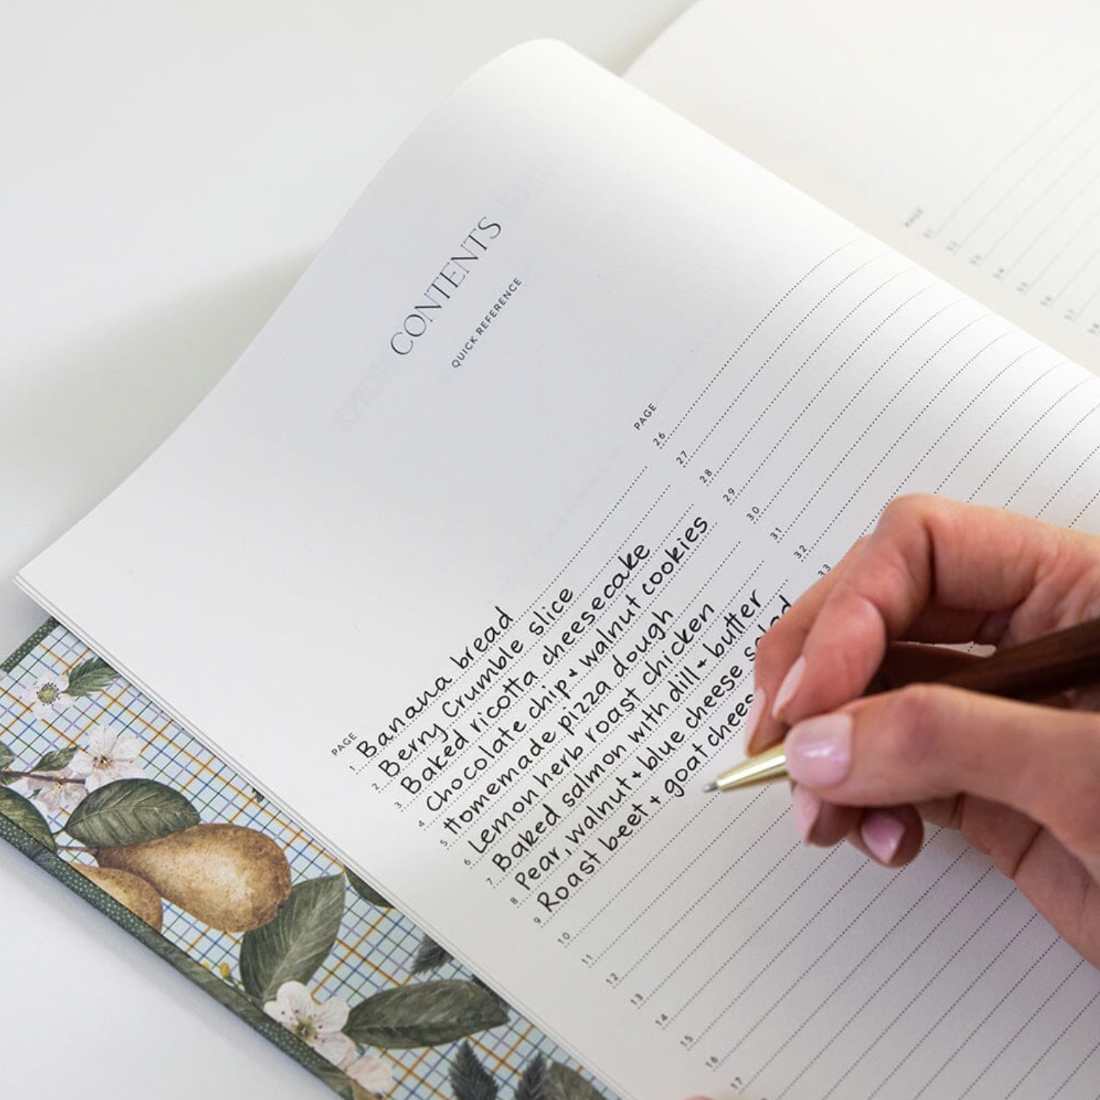 CONTENTS
QUICK REFERENCE
PAGE
1 Banana bread
2 Berry Crumble slice
3 Baked ricotta cheesecake
4 Chocolate chip + walnut cookies
5 Homemade pizza dough
6 Lemon herb roast chicken
7 Baked salmon with dill + butter
8 Pear, walnut + blue cheese salad
9 Roast beet + goat chees
10
11
12
13
14
15
16
17
PAGE
26
27
28
29
30
31
32
33
PAGE